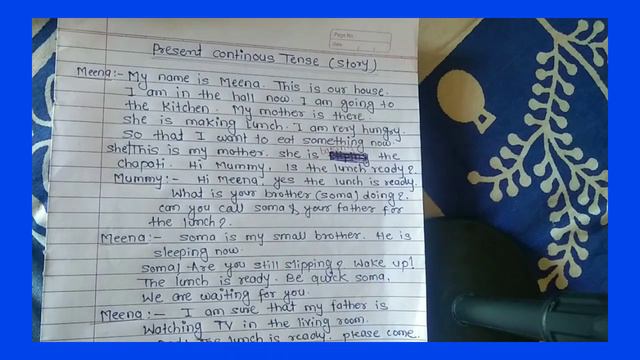 Page No.
Date
Present continous Tense (story)
Meena:- My name is Meena. This is our house.
I am in the hall now. I am going to
the kitchen. My mother is there.
she is making lunch. I am very hungry.
So that I want to eat something now.
she/This is my mother. she is the
chapati. Hi Mummy, Is the lunch ready?
Mummy:- Hi Meena, yes the lunch is ready.
What is your brother (soma) doing?
can you call soma & your father for
the lunch?
Meena:- soma is my small brother. He is
sleeping now.
soma! Are you still slipping? Wake up!
The lunch is ready. Be quick soma.
We are waiting for you.
Meena:- I am sure that my father is
Watching TV in the living room.
The lunch is ready. please come.